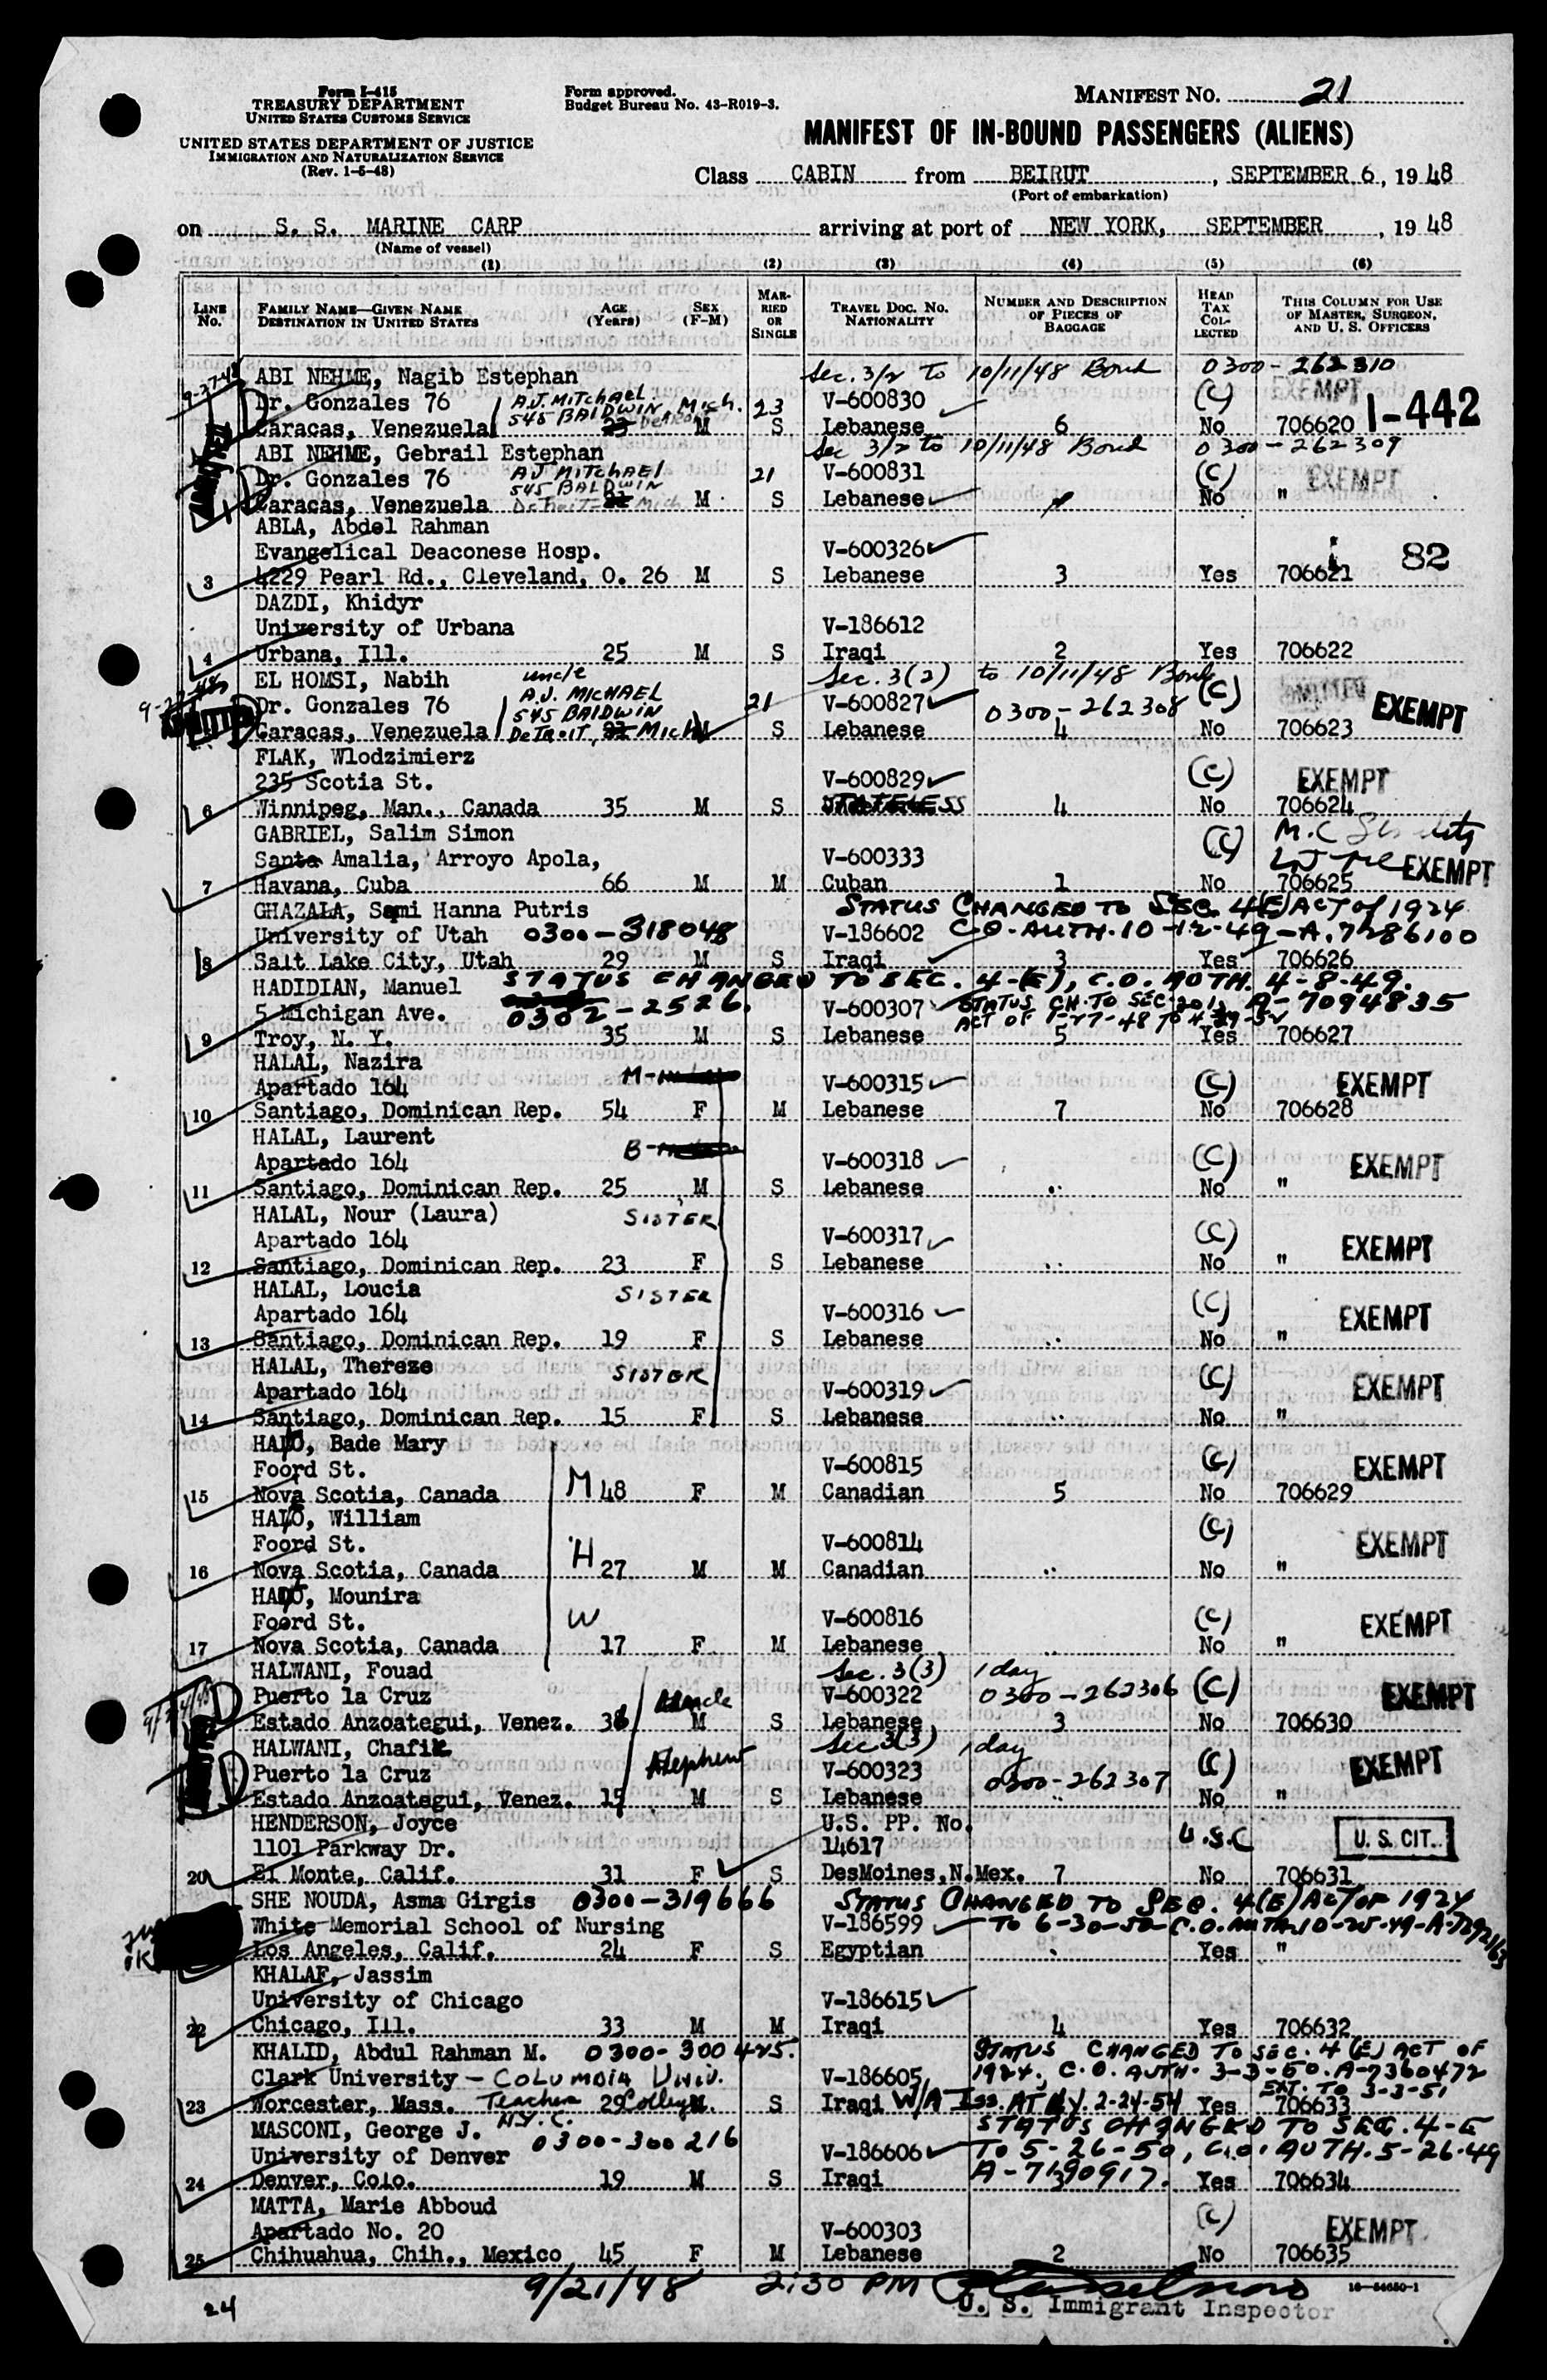 Form I-415
TREASURY DEPARTMENT
UNITED STATES CUSTOMS SERVICE
UNITED STATES DEPARTMENT OF JUSTICE
IMMIGRATION AND NATURALIZATION SERVICE
(Rev. 1-5-48)
Form approved.
Budget Bureau No. 43-R019-3.
MANIFEST NO. 21
MANIFEST OF IN-BOUND PASSENGERS (ALIENS)
Class CABIN from BEIRUT, SEPTEMBER 6, 1948
(Port of embarkation)
on S. S. MARINE CARP arriving at port of NEW YORK, SEPTEMBER, 1948
(Name of vessel)
(1) (2) (3) (4) (5) (6)
LINE No. FAMILY NAME—GIVEN NAME DESTINATION IN UNITED STATES AGE (Years) SEX (F-M) MARRIED OR SINGLE TRAVEL DOC. NO. NATIONALITY NUMBER AND DESCRIPTION OF PIECES OF BAGGAGE HEAD TAX COLLECTED THIS COLUMN FOR USE OF MASTER, SURGEON, AND U. S. OFFICERS
9-27-48 ABI NEHME, Nagib Estephan Sec. 3/2 to 10/11/48 Bond 0300-262310
Dr. Gonzales 76 A.J. MITCHAEL 23 V-600830 (C) EXEMPT
Caracas, Venezuela 545 BALDWIN Mich. M S Lebanese 6 No 706620 1-442
ABI NEHME, Gebrail Estephan Sec 3/2 to 10/11/48 Bond 0300-262309
Dr. Gonzales 76 A J MITCHAEL 21 V-600831 (C) EXEMPT
545 BALDWIN
Caracas, Venezuela Detroit Mich M S Lebanese No "
ABLA, Abdel Rahman
Evangelical Deaconese Hosp. V-600326 82
3 4229 Pearl Rd., Cleveland, O. 26 M S Lebanese 3 Yes 706621
DAZDI, Khidyr
University of Urbana V-186612
4 Urbana, Ill. 25 M S Iraqi 2 Yes 706622
EL HOMSI, Nabih uncle Sec. 3(2) to 10/11/48 Bond
Dr. Gonzales 76 A.J. MICHAEL 21 V-600827 0300-262308 (C) EXEMPT
545 BALDWIN
Caracas, Venezuela DETROIT, Mich M S Lebanese 4 No 706623
FLAK, Wlodzimierz
235 Scotia St. V-600829 (C) EXEMPT
6 Winnipeg, Man., Canada 35 M S STATELESS 4 No 706624
GABRIEL, Salim Simon
Santa Amalia, Arroyo Apola, V-600333 (C) EXEMPT
7 Havana, Cuba 66 M M Cuban 1 No 706625
GHAZALA, Sami Hanna Putris STATUS CHANGED TO SEC. 4(E) ACT of 1924
University of Utah 0300-318048 V-186602 C.O. AUTH. 10-12-49-A.7286100
8 Salt Lake City, Utah 29 M S Iraqi 3 Yes 706626
HADIDIAN, Manuel STATUS CHANGED TO SEC. 4-(E), C.O. AUTH. 4-8-49.
5 Michigan Ave. 0302-2526. V-600307 STATUS CH. TO SEC. 201, A-7094835
9 Troy, N. Y. 35 M S Lebanese 5 Yes 706627
HALAL, Nazira
Apartado 164 M- V-600315 (C) EXEMPT
10 Santiago, Dominican Rep. 54 F M Lebanese 7 No 706628
HALAL, Laurent
Apartado 164 B- V-600318 (C) EXEMPT
11 Santiago, Dominican Rep. 25 M S Lebanese .. No "
HALAL, Nour (Laura) SISTER
Apartado 164 V-600317 (C) EXEMPT
12 Santiago, Dominican Rep. 23 F S Lebanese .. No "
HALAL, Loucia SISTER
Apartado 164 V-600316 (C) EXEMPT
13 Santiago, Dominican Rep. 19 F S Lebanese .. No "
HALAL, Thereze SISTER
Apartado 164 V-600319 (C) EXEMPT
14 Santiago, Dominican Rep. 15 F S Lebanese .. No "
Bade Mary
Foord St. V-600815 (C) EXEMPT
15 Nova Scotia, Canada M 48 F M Canadian 5 No 706629
William
Foord St. V-600814 (C) EXEMPT
16 Nova Scotia, Canada H 27 M M Canadian .. No "
Mounira
Foord St. W V-600816 (C) EXEMPT
17 Nova Scotia, Canada 17 F M Lebanese .. No "
HALWANI, Fouad Sec. 3(3) 1 day
Puerto la Cruz V-600322 0300-262306 (C) EXEMPT
Estado Anzoategui, Venez. M S Lebanese 3 No 706630
HALWANI, Chafik Sec 3(3) 1 day
Puerto la Cruz V-600323 0300-262307 (C) EXEMPT
Estado Anzoategui, Venez. 15 M S Lebanese .. No "
HENDERSON, Joyce U.S. PP. No.
1101 Parkway Dr. 14617 U.S.C U. S. CIT.
20 El Monte, Calif. 31 F S DesMoines, N.Mex. 7 No 706631
SHE NOUDA, Asma Girgis 0300-319666 STATUS CHANGED TO SEC. 4(E) ACT OF 1924
White Memorial School of Nursing V-186599 TO 6-30-50-C.O. AUTH. 10-25-49-
Los Angeles, Calif. 24 F S Egyptian Yes "
KHALAF, Jassim
University of Chicago V-186615
22 Chicago, Ill. 33 M M Iraqi 4 Yes 706632
KHALID, Abdul Rahman M. 0300-300425. STATUS CHANGED TO SEC. 4(E) ACT OF
Clark University - COLUMBIA UNIV. V-186605 1924. C.O. AUTH. 3-3-50. A-7360472
EXT. TO 3-3-51
23 Worcester, Mass. Teachers College 29 M. S Iraqi W/A Iss. AT N.Y. 2-24-54 Yes 706633
N.Y.C.
MASCONI, George J. 0300-300216 STATUS CHANGED TO SEC. 4-E
University of Denver V-186606 TO 5-26-50, C.O. AUTH. 5-26-49
24 Denver, Colo. 19 M S Iraqi A-7190917. Yes 706634
MATTA, Marie Abboud
Apartado No. 20 V-600303 (C) EXEMPT
25 Chihuahua, Chih., Mexico 45 F M Lebanese 2 No 706635
9/21/48 2:30 PM
24 U. S. Immigrant Inspector